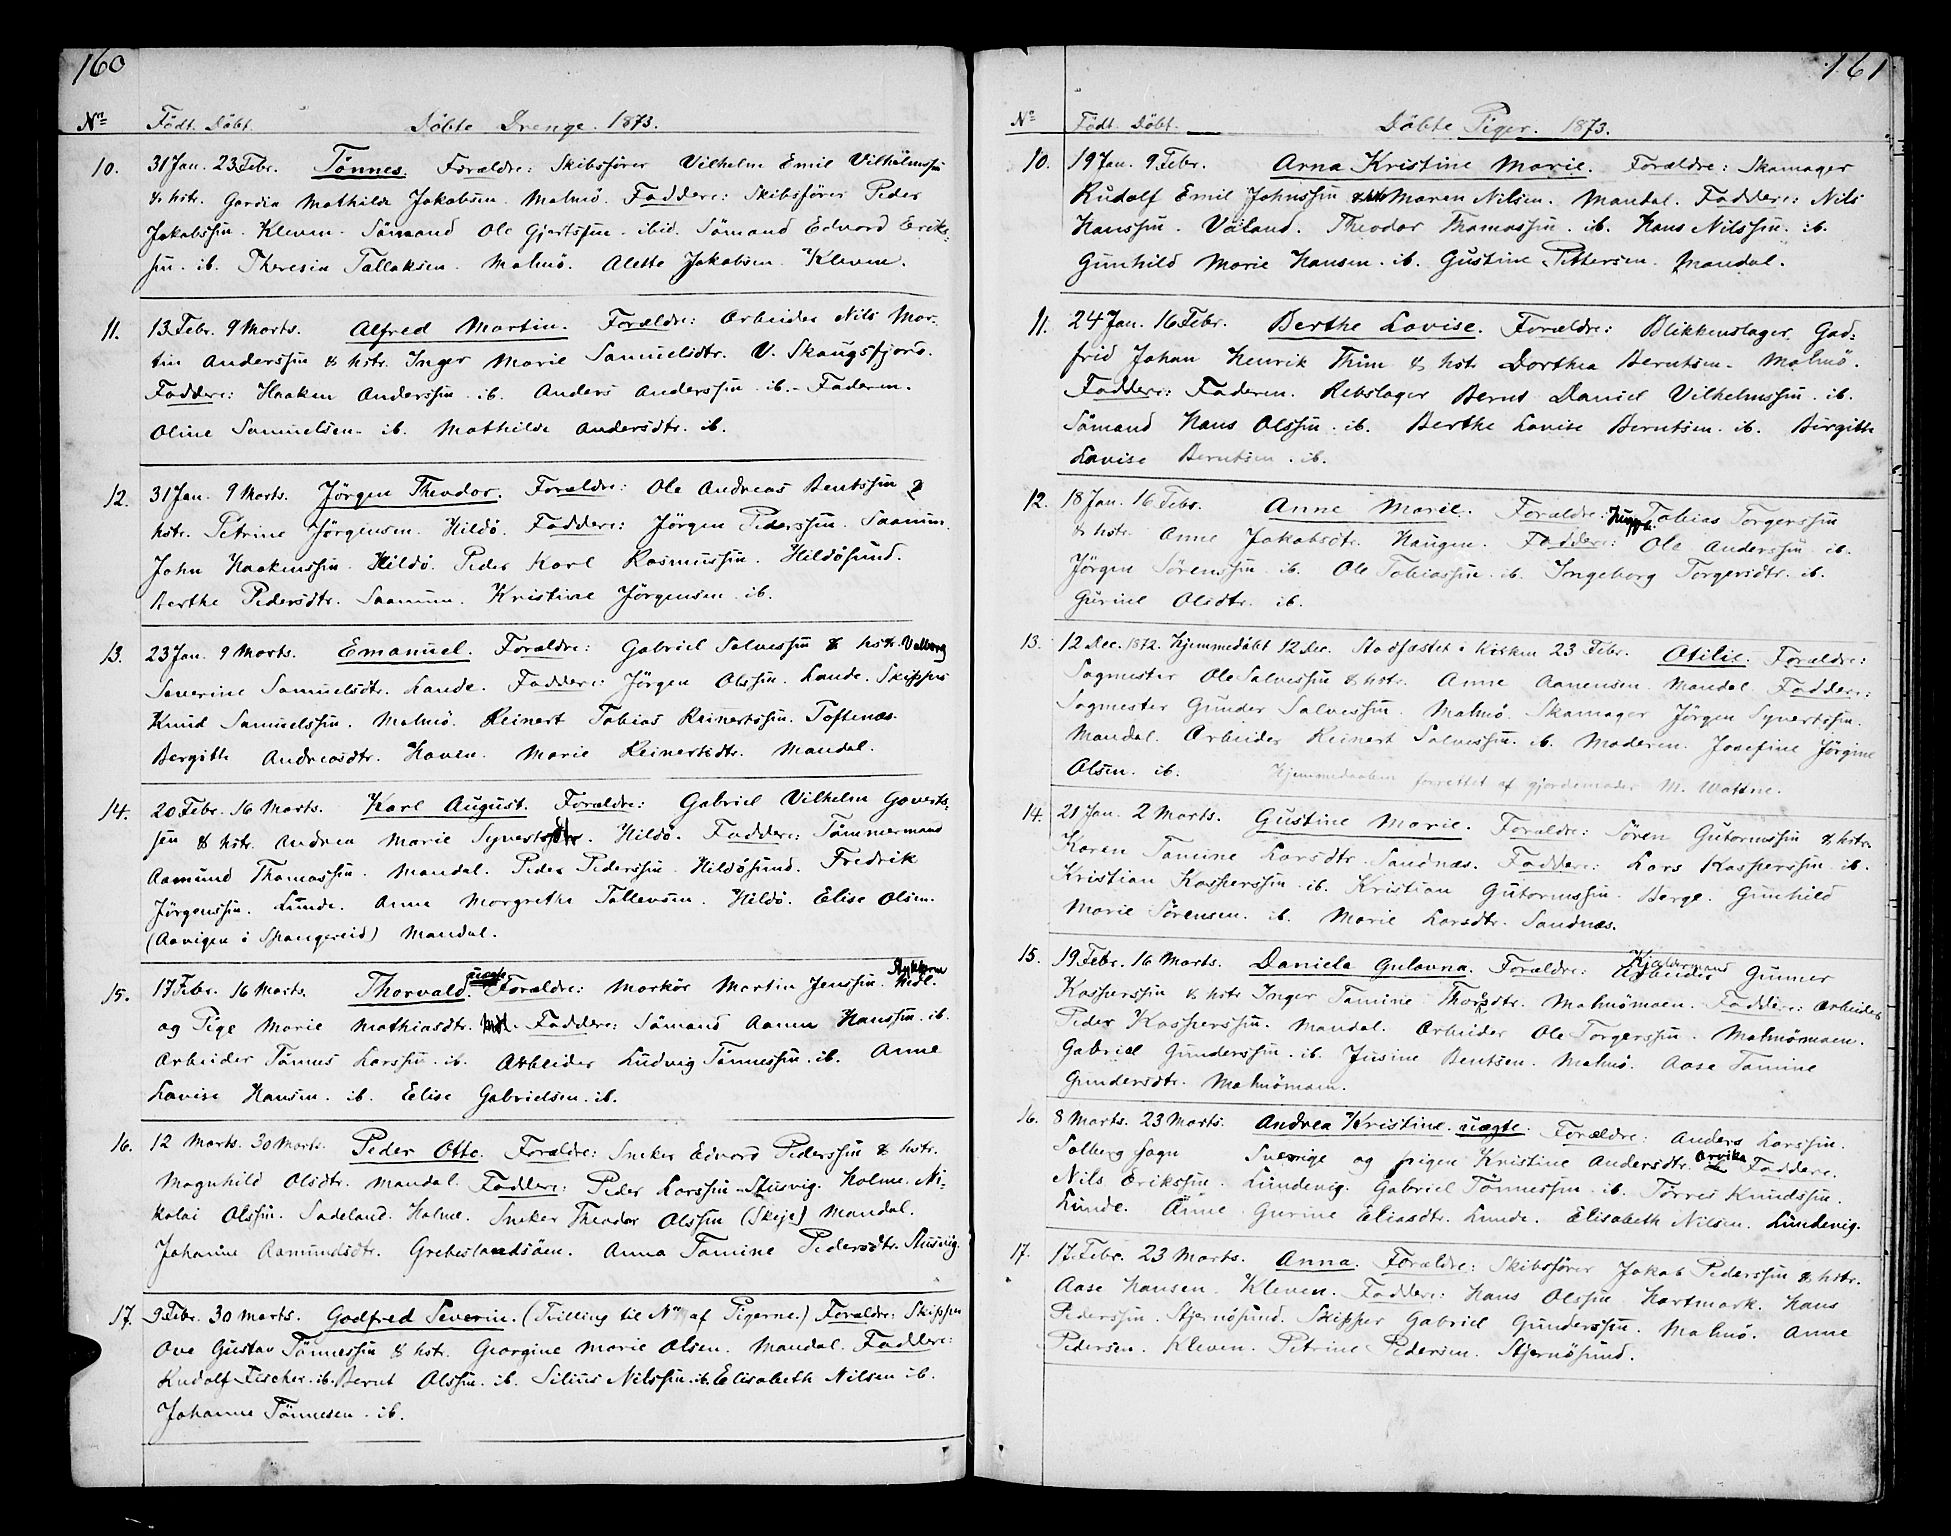 160
No. Födt. Döbt. Döbte Drenge. 1873.
10. 31 Jan. 23 Febr. Tönnes. Forældre: Skibsförer Vilhelm Emil Vilhelmssen
& hstr. Gardia Mathilde Jakobsen. Malmö. Faddere: Skibsförer Peder
Jakobssen. Kleven. Sömand Ole Gjertssen. ibid. Sömand Edvard Eriks-
sen. ib. Theresia Tallaksen. Malmö. Alette Jakobsen. Kleven.
11. 13. Febr. 9 Marts. Alfred Martin. Forældre: Arbeider Nils Mar-
tin Anderssen & hstr. Inger Marie Samuelsdtr. V. Skaugsfjord.
Faddere: Haaken Anderssen. ib. Anders Anderssen. ib. Faderen.
Oline Samuelsen. ib. Mathilde Andersdtr. ib.
12. 31 Jan. 9 Marts. Jörgen Theodor. Forældre: Ole Andreas Bentssen &
hstr. Petrine Jörgensen. Hildö. Faddere: Jörgen Pederssen. Saanum.
John Haakenssen. Hildö. Peder Karl Rasmussen. Hildösund.
Berthe Pedersdtr. Saanum. Kristine Jörgensen. ib.
13. 23 Jan. 9 Marts. Emanuel. Forældre: Gabriel Salvessen & hstr. Valborg
Severine Samuelsdtr. Lande. Faddere: Jörgen Olssen. Lande. Skipper
Knud Samuelssen. Malmö. Reinert Tobias Reinertssen. Toftenæs.
Bergitte Andreasdtr. Haven. Marie Reinertsdtr. Mandal.
14. 20 Febr. 16 Marts. Karl August. Forældre: Gabriel Vilhelm Goverts-
sen & hstr. Andrea Marie Syvertsdtr. Hildö. Faddere: Tömmermand
Aamund Thomassen. Mandal. Peder Pederssen. Hildösund. Fredrik
Jörgenssen. Lunde. Anne Margrethe Tallevsen. Hildö. Elise Olsen.
(Aavigen i Spangereid) Mandal.
15. 17 Febr. 16 Marts. Thorvald. uægte. Forældre: Markör Martin Jenssen. Mdl.
og Pige Marie Mathiasdtr. Mdl. Faddere: Sömand Aanen Hanssen. ib.
Arbeider Tönnes Larssen. ib. Arbeider Ludvig Tönnessen. ib. Anne
Lovise Hansen. ib. Elise Gabrielsen. ib.
16. 12 Marts. 30 Marts. Peder Otto. Forældre: Sneker Edvard Pederssen & hstr.
Magnhild Olsdtr. Mandal. Faddere: Peder Larssen. Stusvig. Holme. Ni-
kolai Olssen. Sadeland. Holme. Sneker Theodor Olssen (Skeje) Mandal.
Johanne Aamundsdtr. Grebeslandsåen. Anna Tomine Pedersdtr. Stusvig.
17. 9 Febr. 30 Marts. Godfred Severin. (Tvilling til No af Pigerne.) Forældre: Skipper
Ove Gustav Tönnessen & hstr. Georgine Marie Olsen. Mandal. Faddere:
Rudolf Fischer. ib. Bernt Olssen. ib. Silius Nilssen. ib. Elisabeth Nilsen ib.
Johanne Tönnesen. ib.
161
No. Födt. Döbt. Döbte Piger. 1873.
10. 19 Jan. 9 Febr. Anna Kristine Marie. Forældre: Skomager
Rudolf Emil Johnssen & hstr Maren Nilsen. Mandal. Faddere: Nils
Hanssen. Våland. Theodor Thomassen. ib. Hans Nilssen. ib.
Gunhild Marie Hansen. ib. Gustine Pettersen. Mandal.
11. 24 Jan. 16 Febr. Berthe Lovise. Forældre: Blikkenslager God-
frid Johan Henrik Thim & hstr Dorthea Berntsen. Malmö.
Faddere: Faderen. Rebslager Bernt Daniel Vilhelmssen. ib.
Sömand Hans Olssen. ib. Berthe Lovise Berntsen. ib. Birgitte
Lovise Berntsen. ib.
12. 18 Jan. 16 Febr. Anne Marie. Forældre: Tobias Torgerssen
& hstr. Anne Jakobsdtr. Haugen. Faddere: Ole Anderssen. ib.
Jörgen Sörenssen. ib. Ole Tobiassen. ib. Ingeborg Torgersdtr. ib.
Gurine Olsdtr. ib.
13. 12 Dec. 1872. Hjemmedöbt 12 Dec. Stadfæstet i kirken 23 Febr. Otilie. Forældre:
Sagmester Ole Salvessen & hstr. Anne Aanensen. Mandal. Faddere:
Sagmester Gunder Salvessen. Malmö. Skomager Jörgen Syvertssen.
Mandal. Arbeider Reinert Salvessen. ib. Moderen. Josefine Jörgine
Olsen. ib. Hjemmedaaben forrettet af gjordemoder M. Wattne.
14. 21 Jan. 2 Marts. Gustine Marie. Forældre: Sören Gutormssen & hstr.
Karen Tomine Larsdtr. Sandnæs. Faddere: Lars Kasperssen. ib.
Kristian Kasperssen. ib. Kristian Gutormssen. Berge. Gunhild
Marie Sörensen. ib. Marie Larsdtr. Sandnæs.
15. 19 Febr. 16 Marts. Daniele Gulovna. Forældre: Arbeider Gunner
Kasperssen & hstr Inger Tomine Thorsdtr. Malmömoen. Faddere: Arbeider
Peder Kasperssen. Mandal. Arbeider Ole Torgerssen. Malmömoen.
Gabriel Gunderssen. ib. Jusine Bentsen. Malmö. Aase Tomine
Gundersdtr. Malmömoen.
16. 8 Marts. 23 Marts. Andrea Kristine. uægte. Forældre: Anders Larssen.
Solberg sogn Sverige og pigen Kristine Andersdtr. Arvika Faddere.
Nils Erikssen. Lundevig. Gabriel Tönnessen. ib. Törres Knudssen.
Lunde. Anne Gurine Eliasdtr. Lunde. Elisabeth Nilsen. Lundevig.
17. 17. Febr. 23 Marts. Anna. Forældre: Skibsförer Jakob Pederssen & hstr.
Aase Hansen. Kleven. Faddere: Hans Olssen. Hartmark. Hans
Pederssen. Stjernösund. Skipper Gabriel Gunderssen. Malmö. Anne
Pedersen. Kleven. Petrine Pedersen. Stjernösund.